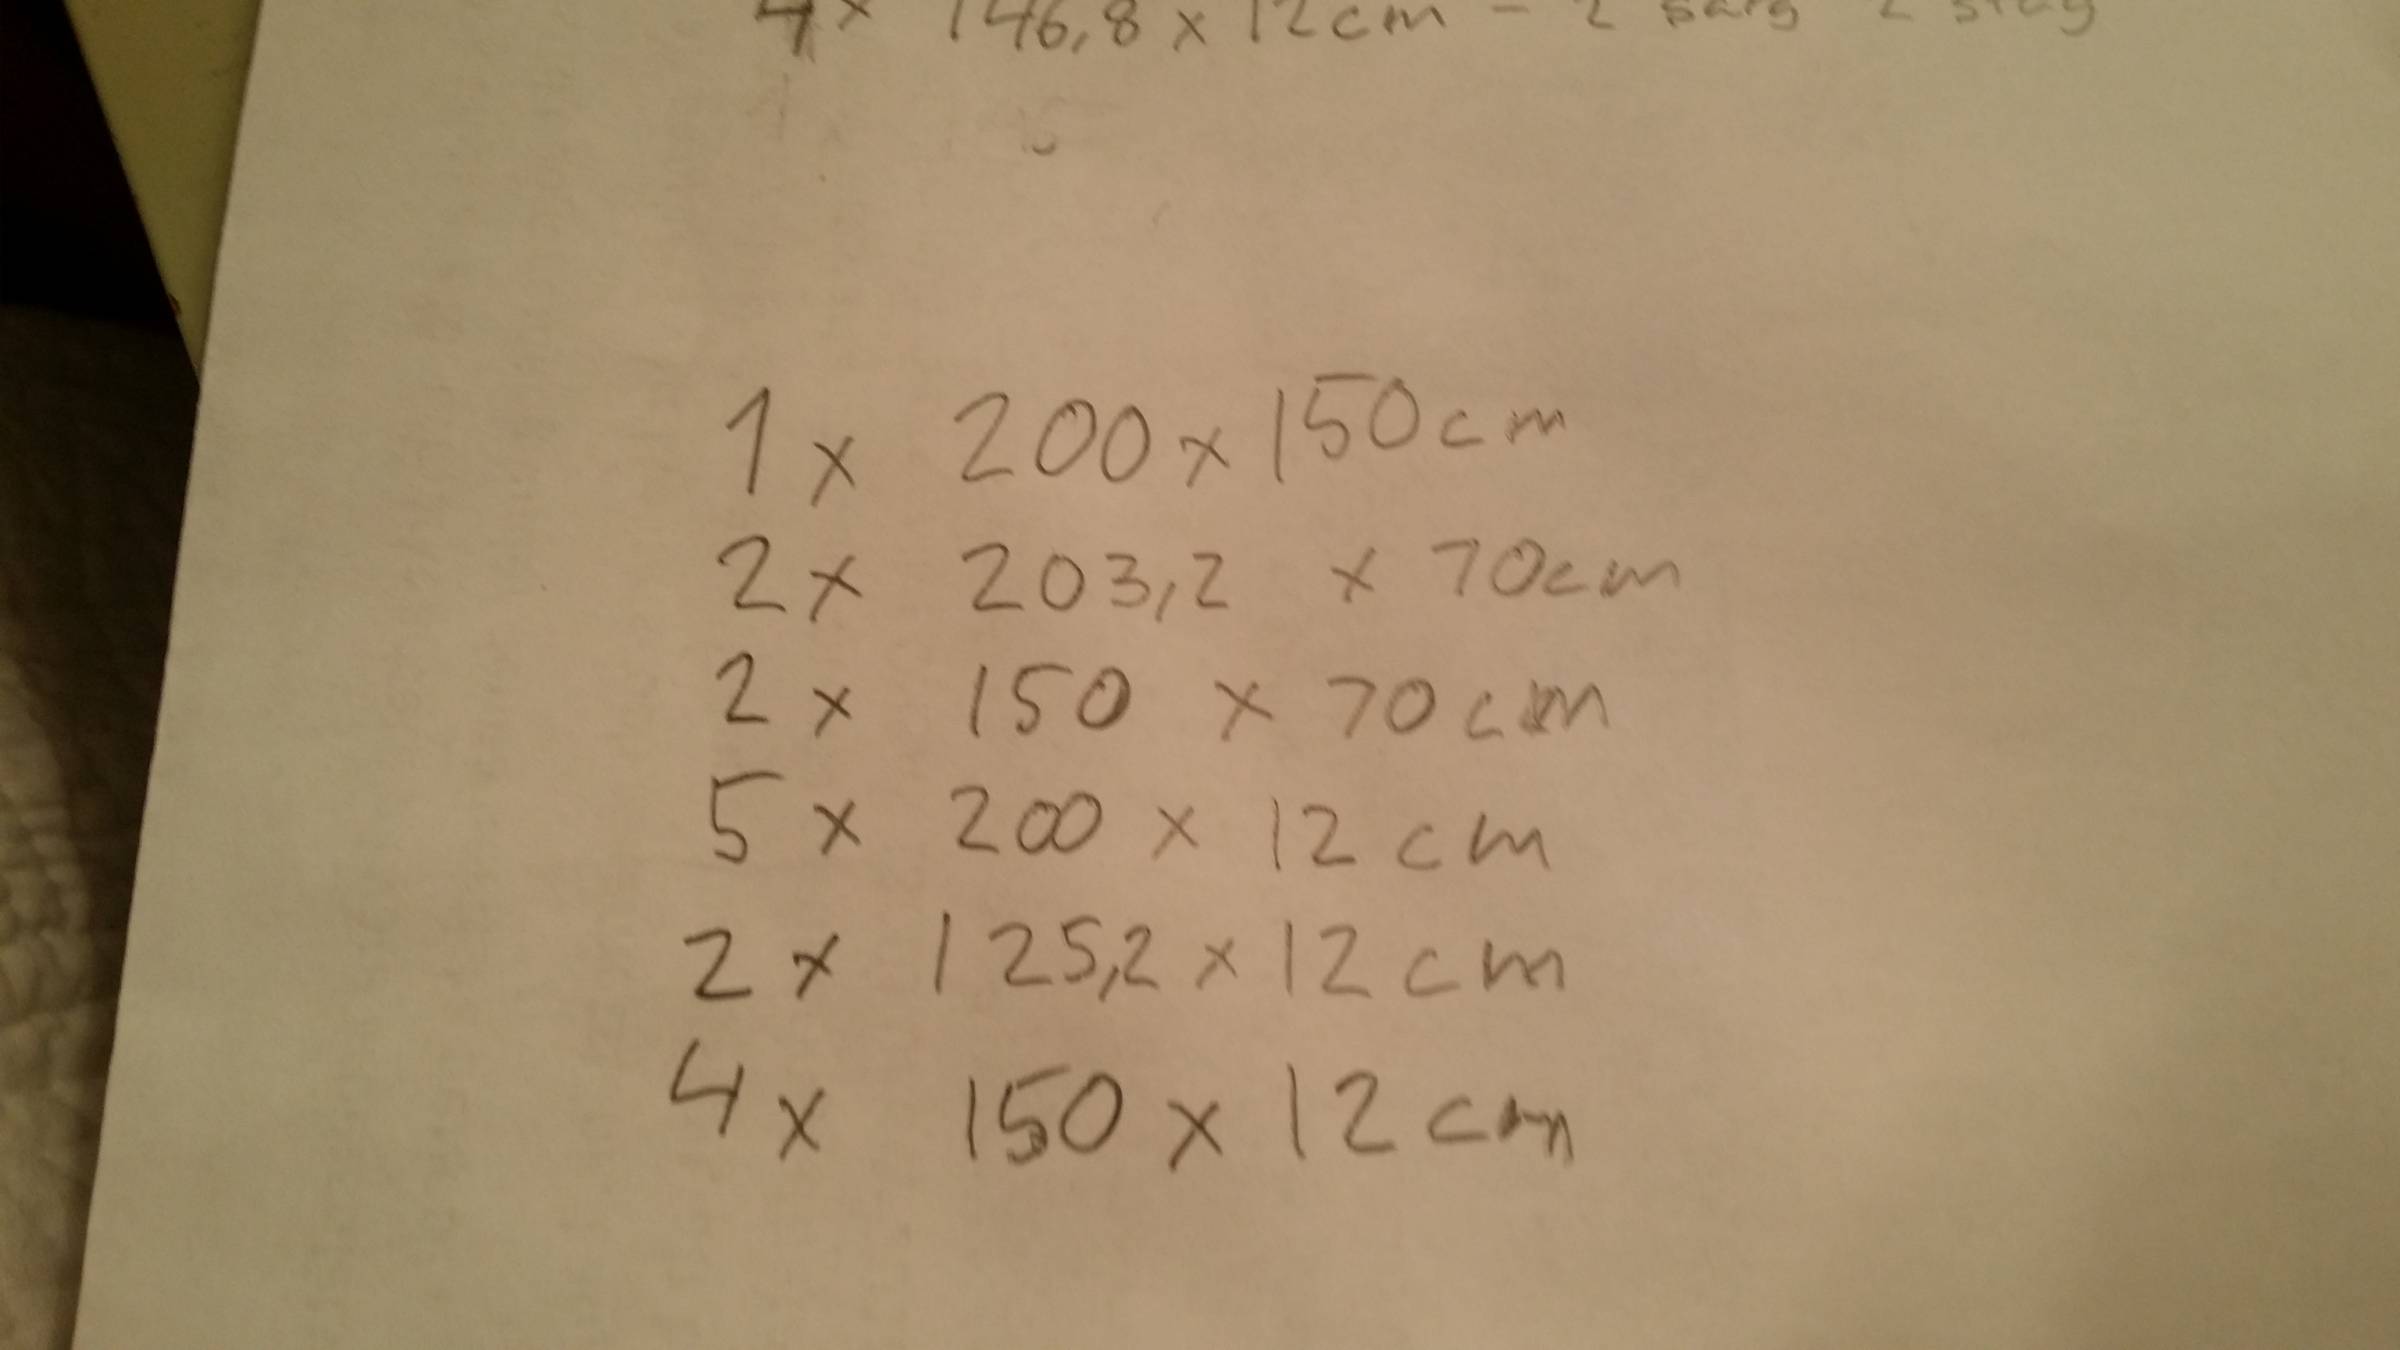 4x 146,8 x 12cm - 2 sarg 2 stag
1x 200x150cm
2x 203,2 x 70cm
2x 150 x 70cm
5x 200 x 12cm
2x 125,2 x 12cm
4x 150 x 12cm